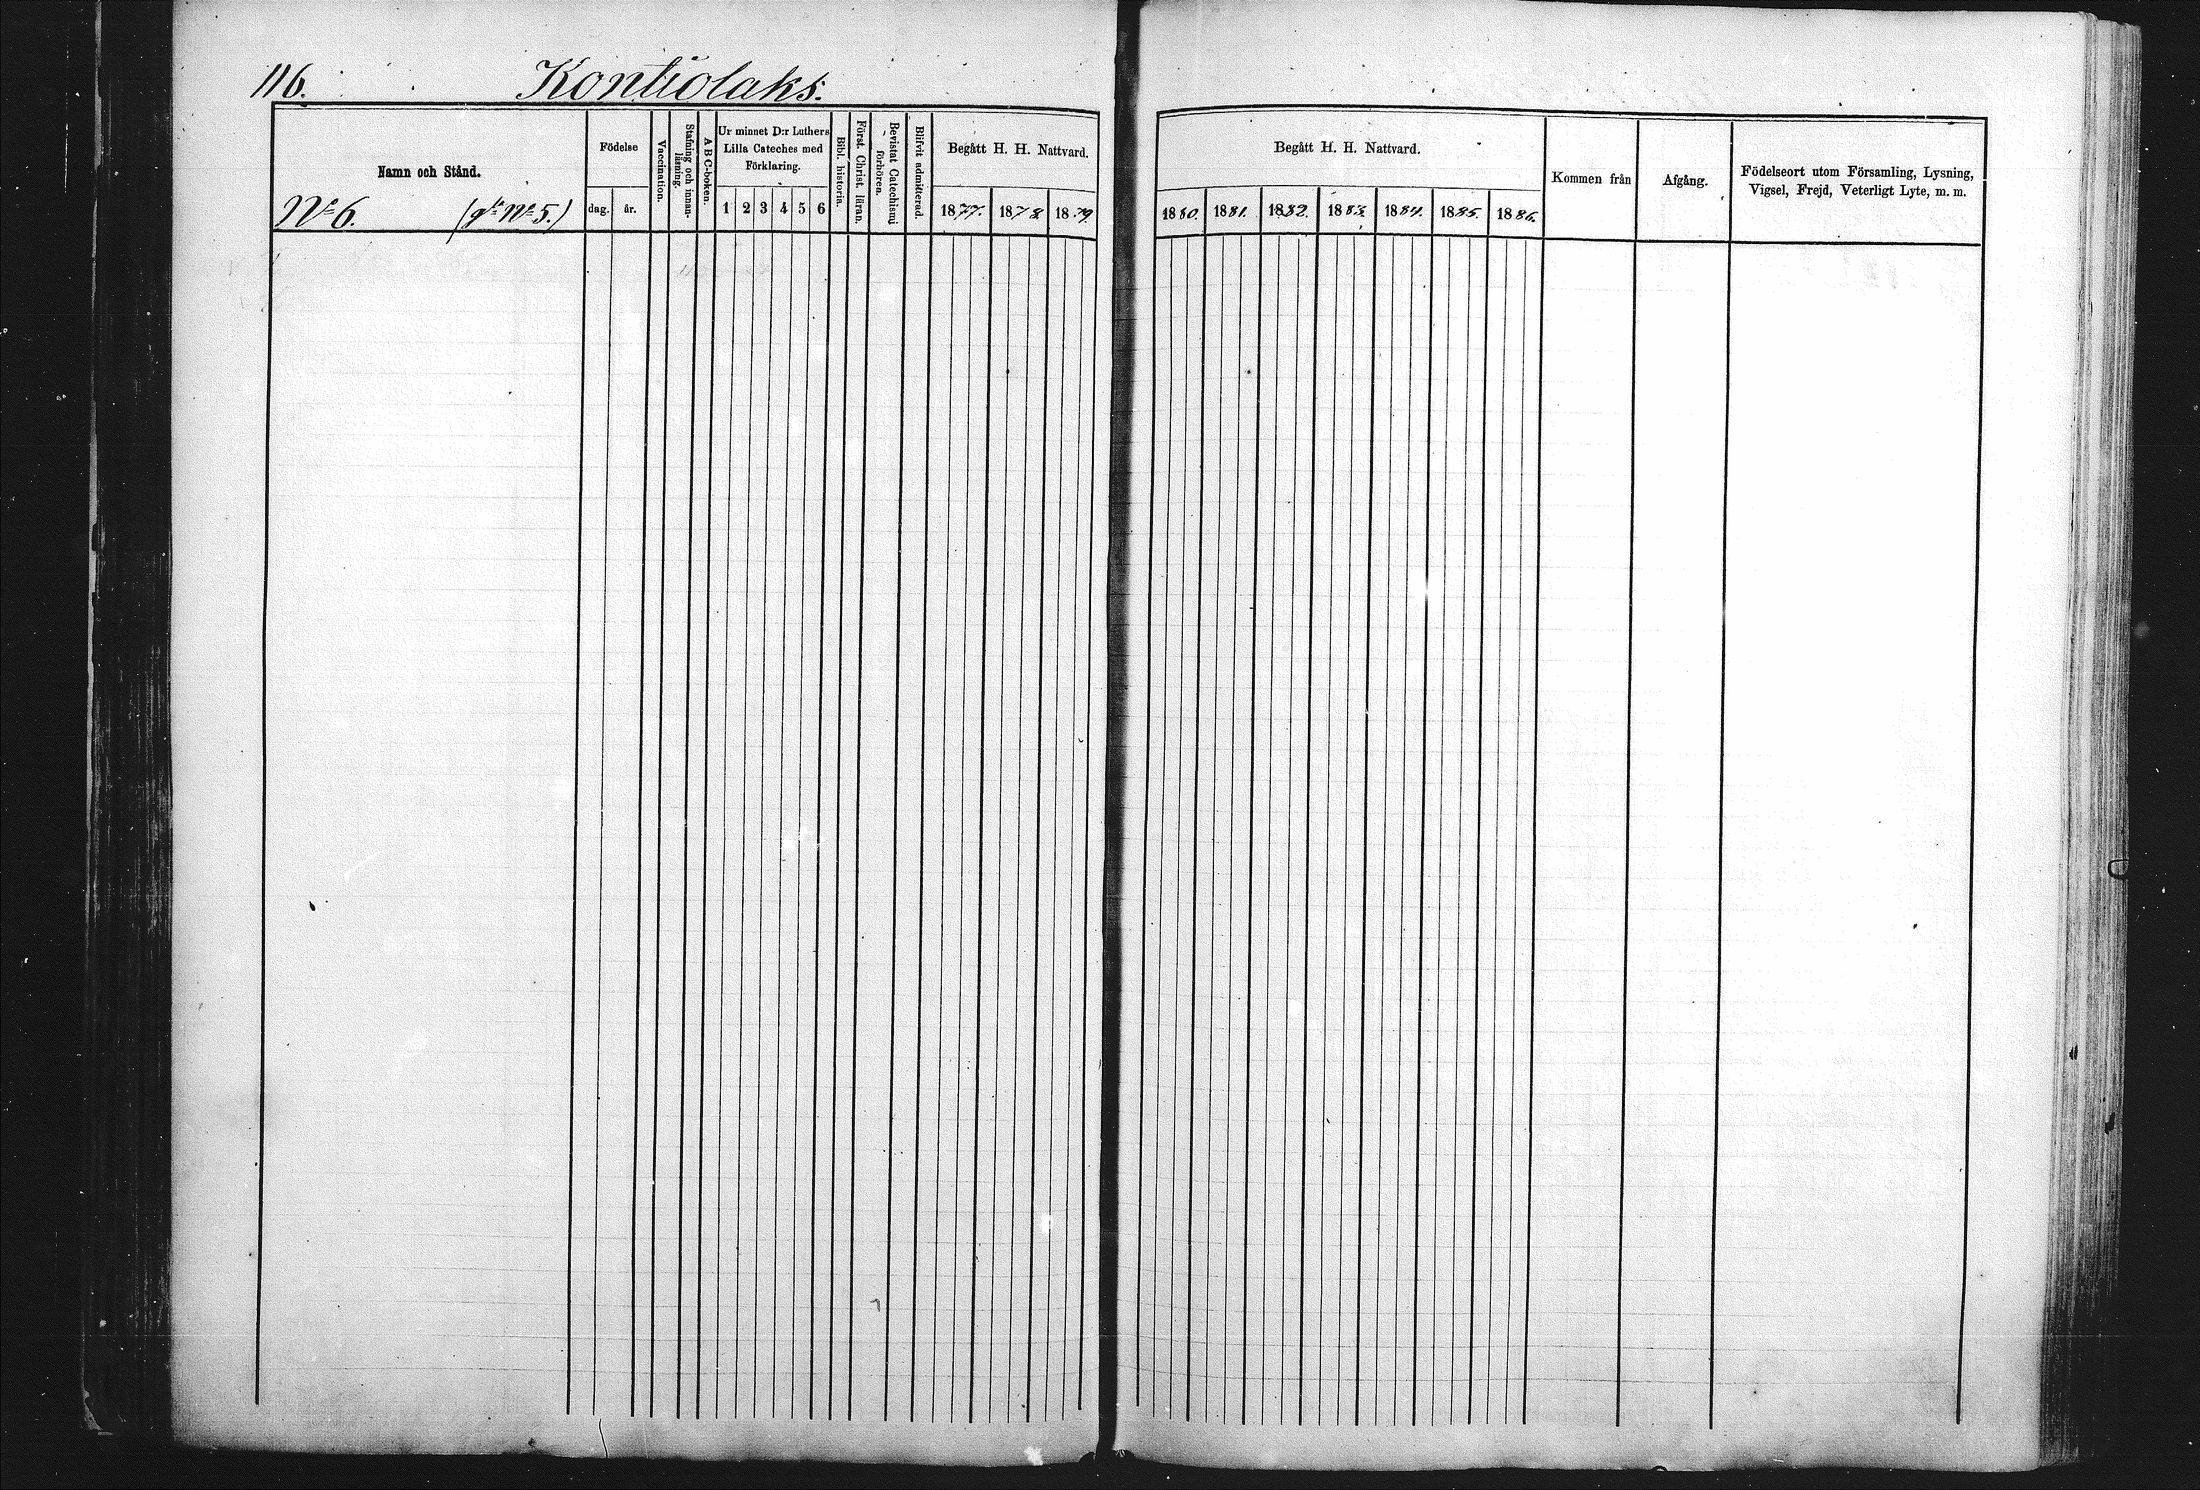 116. Kontiolaks.
Namn och Stånd.
No 6. (gl. No 5.)
Födelse
dag. år.
Vaccination.
Stafning och innan-
läsning.
A B C-boken.
Ur minnet D:r Luthers
Lilla Cateches med
Förklaring.
1 2 3 4 5 6
Bibl. historia.
Först. Christ. läran.
Bevistat Catechismi
förhören.
Blifvit admitterad.
Begått H. H. Nattvard.
1877. 1878. 1879.
Begått H. H. Nattvard.
1880. 1881. 1882. 1883. 1884. 1885. 1886.
Kommen från
Afgång.
Födelseort utom Församling, Lysning,
Vigsel, Frejd, Veterligt Lyte, m. m.